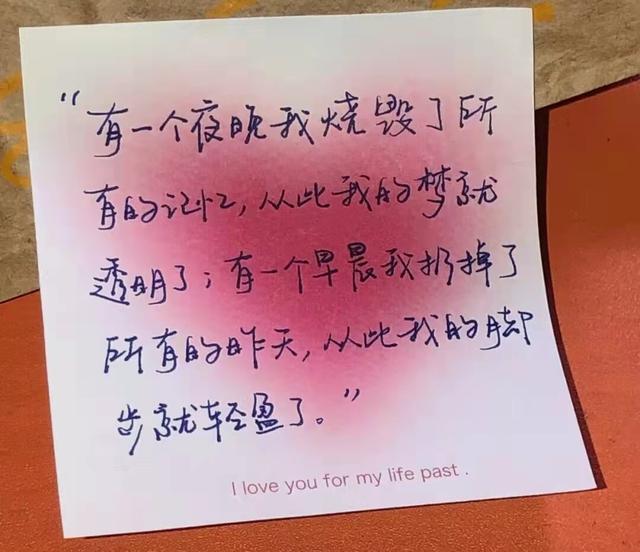 “有一个夜晚我烧毁了所
有的记忆,从此我的梦就
透明了;有一个早晨我扔掉了
所有的昨天,从此我的脚
步就轻盈了。”
I love you for my life past .